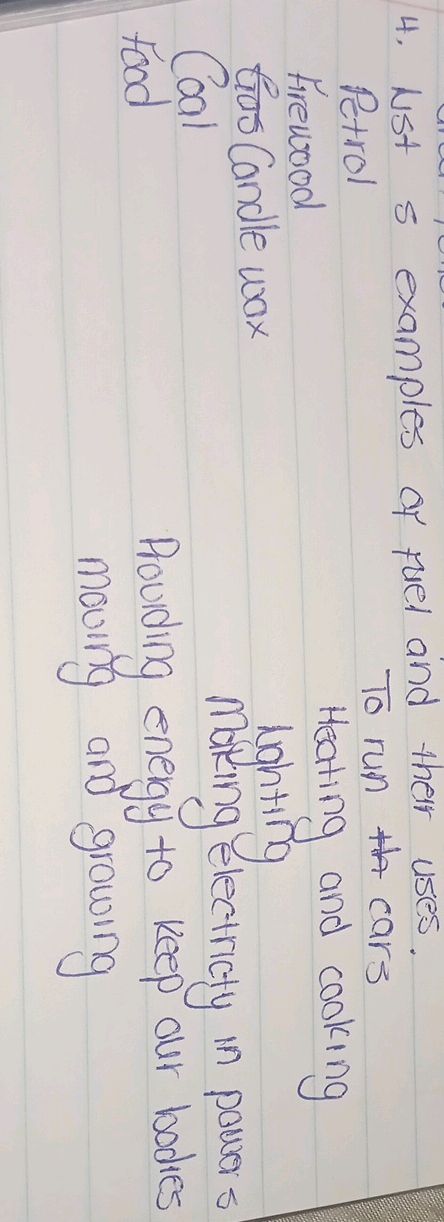 4. List 5 examples of fuel and their uses.
Petrol To run cars
Firewood Heating and cooking
Candle wax Lighting
Coal Making electricty in power s
Food Providing energy to keep our bodies
moving and growing